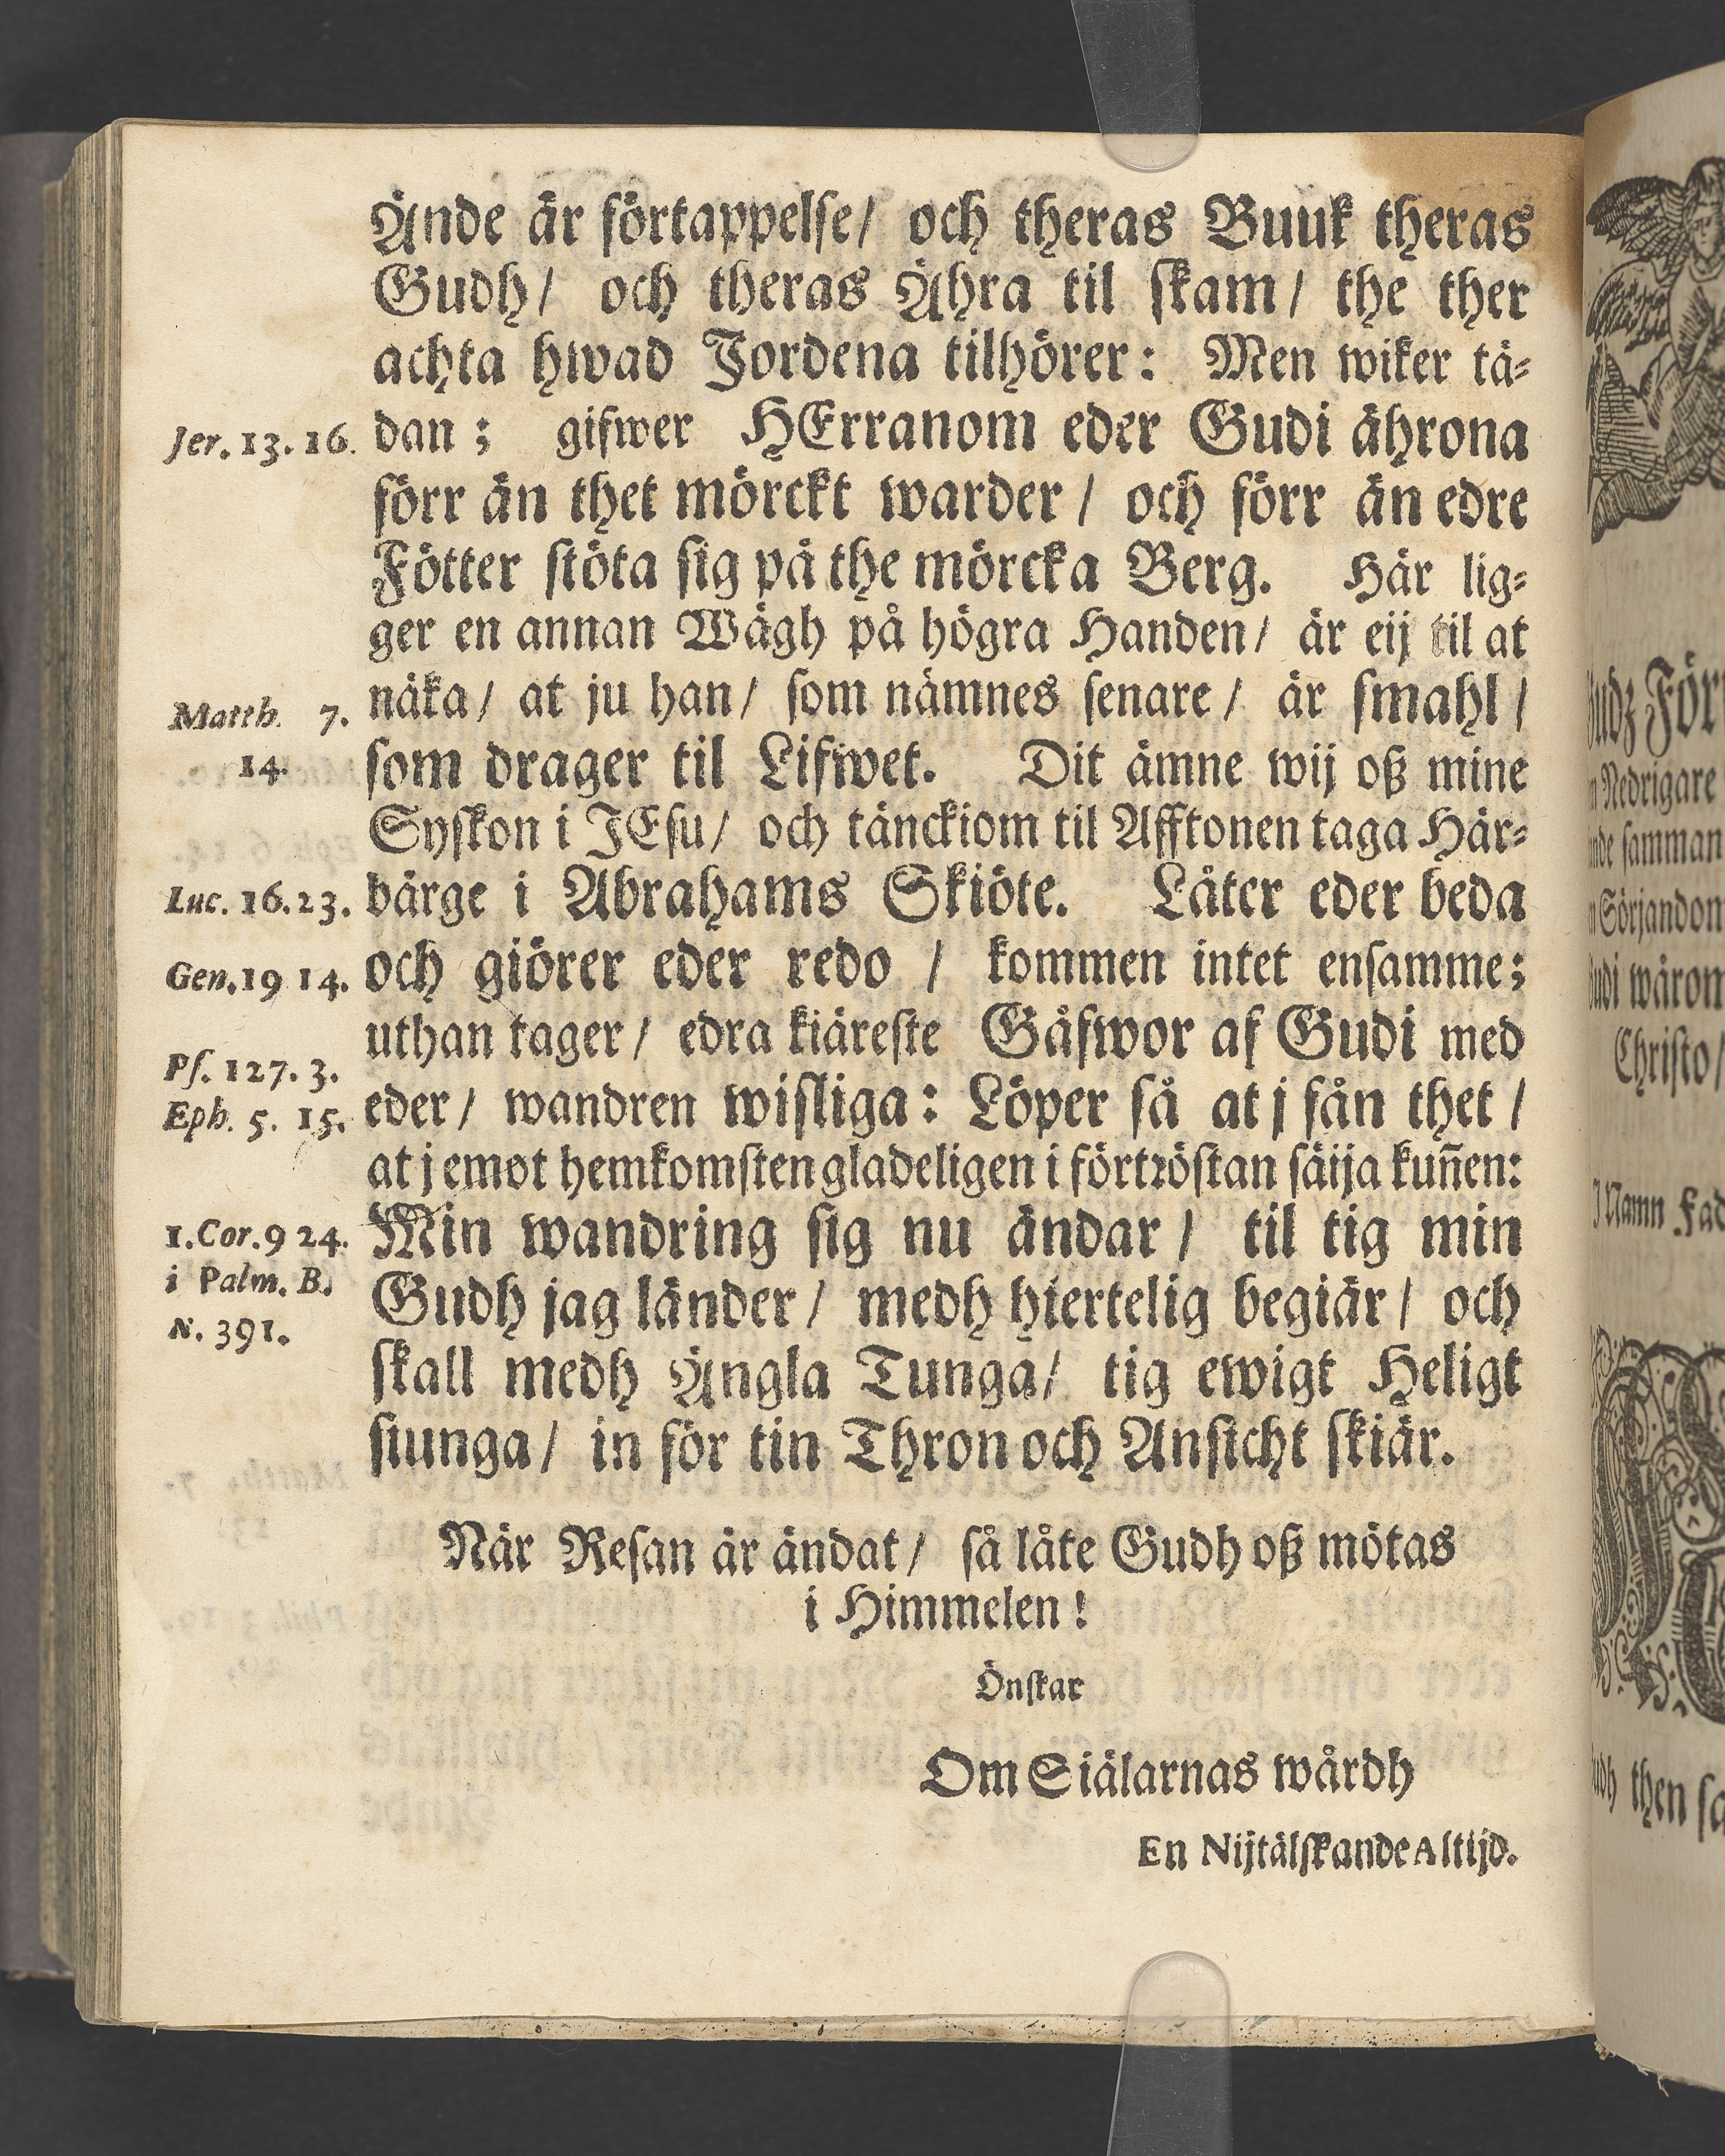 Ände är förtappelse/ och theras Buuk theras
Gudh/ och theras Ähra til skam/ the ther
achta hwad Jordena tilhörer: Men wiker tä-
Jer. 13. 16.
dan; gifwer HErranom eder Gudi ährona
förr än thet mörckt warder/ och förr än edre
Fötter stöta sig på the mörcka Berg. Här lig-
ger en annan Wägh på högra Handen/ är eij til at
Matth. 7.
14.
näka/ at ju han/ som nämnes senare/ är smahl/
som drager til Lifwet. Dit ämne wij oß mine
Syskon i JEsu/ och tänckiom til Afftonen taga Här-
Luc. 16. 23.
bärge i Abrahams Skiöte. Låter eder beda
Gen. 19 14.
och giörer eder redo / kommen intet ensamme;
uthan tager/ edra kiäreste Gåfwor af Gudi med
Ps. 127. 3.
Eph. 5. 15.
eder/ wandren wisliga: Löper så at j fån thet/
at j emot hemkomsten gladeligen i förtröstan säija kun̄en:
1. Cor. 9 24.
i Palm. B.
N. 391.
Min wandring sig nu ändar/ til tig min
Gudh jag länder/ medh hiertelig begiär/ och
skall medh Ängla Tunga/ tig ewigt Heligt
siunga/ in för tin Thron och Ansicht skiär.
När Resan är ändat/ så låte Gudh oß mötas
i Himmelen!
Önskar
Om Siälarnas wårdh
En Nijtälskande Altijd.
Nedrigare
samman
Sörjandom
wårom
Christo/
Namn Fad
then